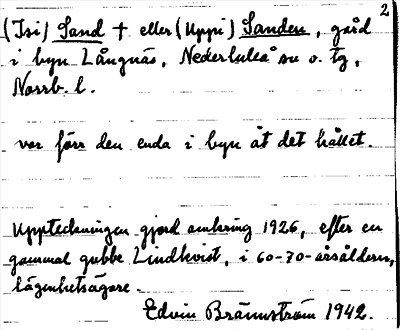 2
(Isi) Sand † eller (Uppi) Sanden, gård
i byn Långnäs, Nederluleå sn o. tg,
Norrb. l.
var förr den enda i byn åt det hållet.
Uppteckningen gjord omkring 1926, efter en
gammal gubbe Lindkvist, i 60-70-årsåldern,
lägenhetsägare.
Edvin Brännström 1942.